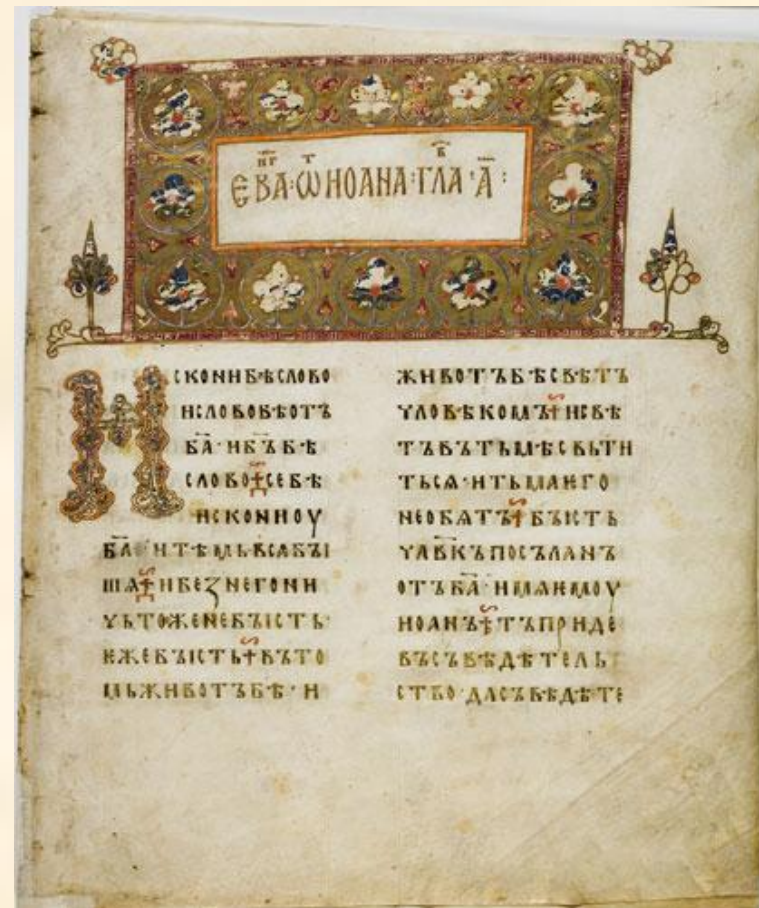 ЕВАⷩ҇ⷢ҇·Ѿ ИОАНА·ГЛАⷡ҇·А҃:
ИСКОНИБѢСЛОВО
ИСЛОВОБѢОТЪ
БА҃·ИБЪ҃БѢ
СЛОВО СЕБѢ
ИСКОНИОУ
БА҃·И ТѢМЬВСꙖБꙐ
ШѦ ИБЕЗНЕГОНИ
ЧЬТОЖЕНЕБꙐСТЬ·
ѤЖЕБꙐСТЬ ВЪТО
МЬЖИВОТЪБѢ·И
ЖИВОТЪБѢСВѢТЪ
ЧЛОВѢКОМЪ ИСВѢ
ТЪВЪТЬМѢСВЬТИ
ТЬСѦ·ИТЬМАѤГО
НЕОБѦТЪ БꙐСТЬ
ЧЛВ҃КЪПОСЪЛАНЪ
ОТЪБА҃·ИМѦѤМОУ
ИОАНЪ ТЪПРИДЕ
ВЪСЪВѢДѢТЕЛЬ
СТВО·ДАСЪВѢДѢТЕ